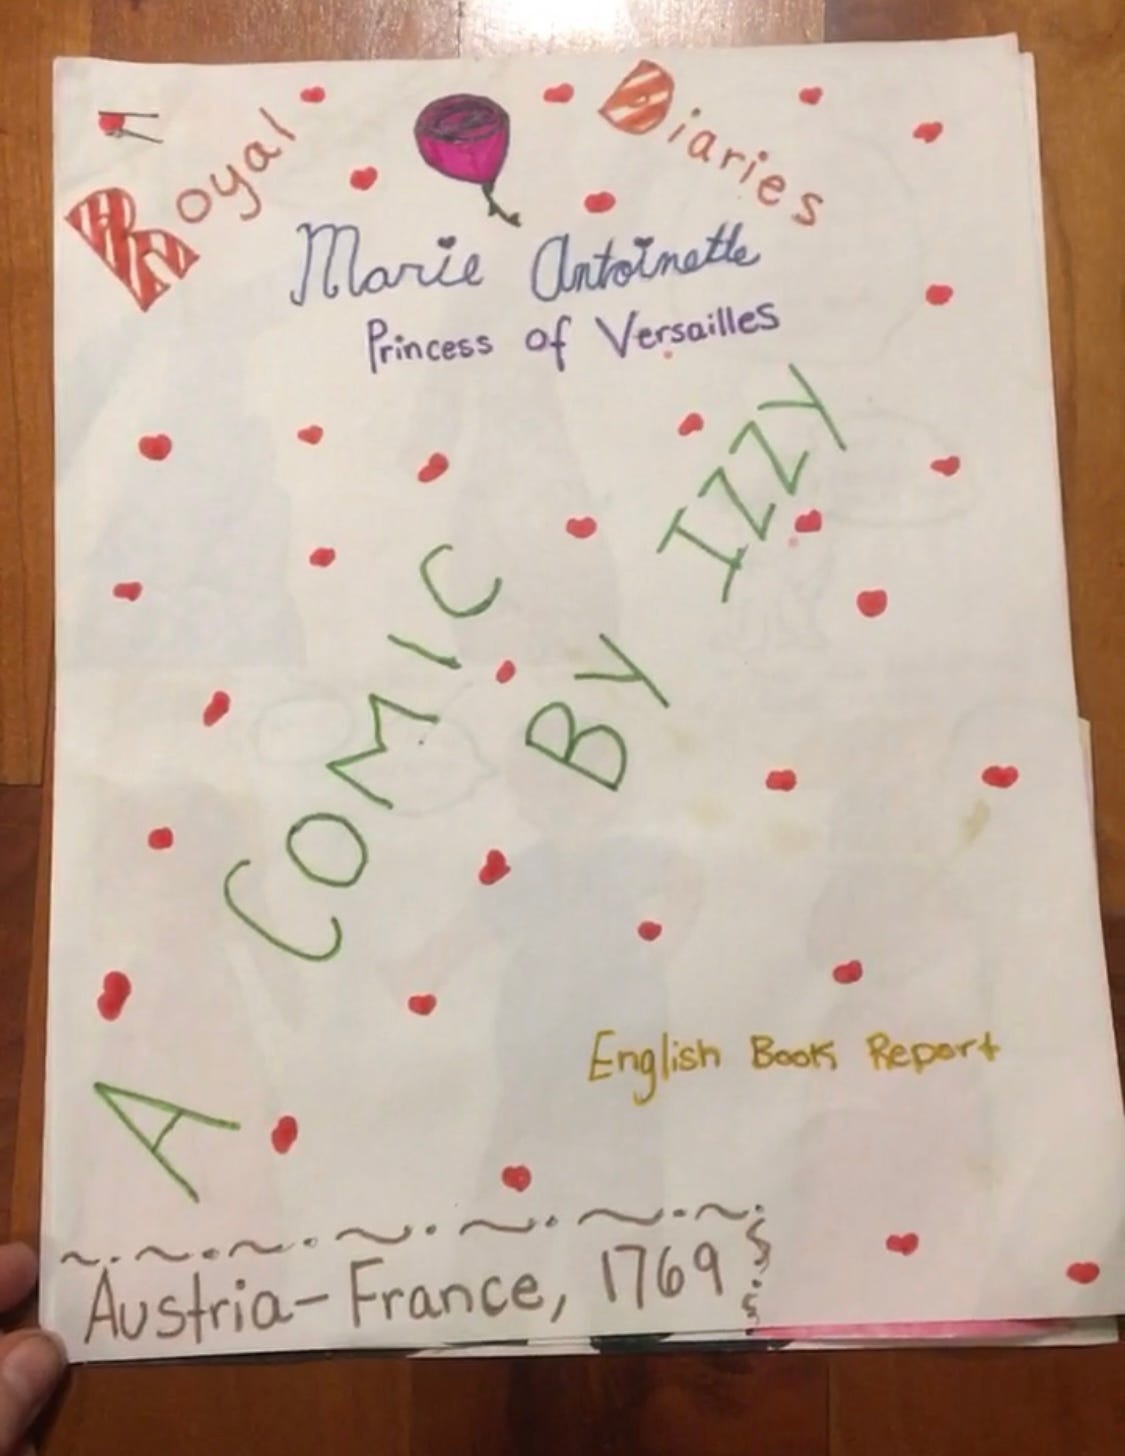 Royal Diaries
Marie Antoinette
Princess of Versailles
A COMIC
BY IZZY
English Book Report
Austria-France, 1769